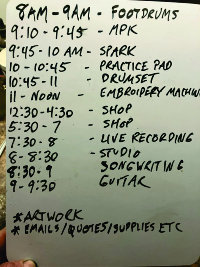 8AM-9AM - FOOTDRUMS
9:10 - 9:45 - MPK
9:45 - 10 AM - SPARK
10 - 10:45 - PRACTICE PAD
10:45 - 11 - DRUMSET
11 - NOON - EMBROIDERY MACHINE
12:30 - 4:30 - SHOP
5:30 - 7 - SHOP
7:30 - 8 - LIVE RECORDING
8 - 8:30 - STUDIO
8:30 - 9 SONGWRITING
9 - 9:30 GUITAR
*ARTWORK
*EMAILS/QUOTES/SUPPLIES ETC